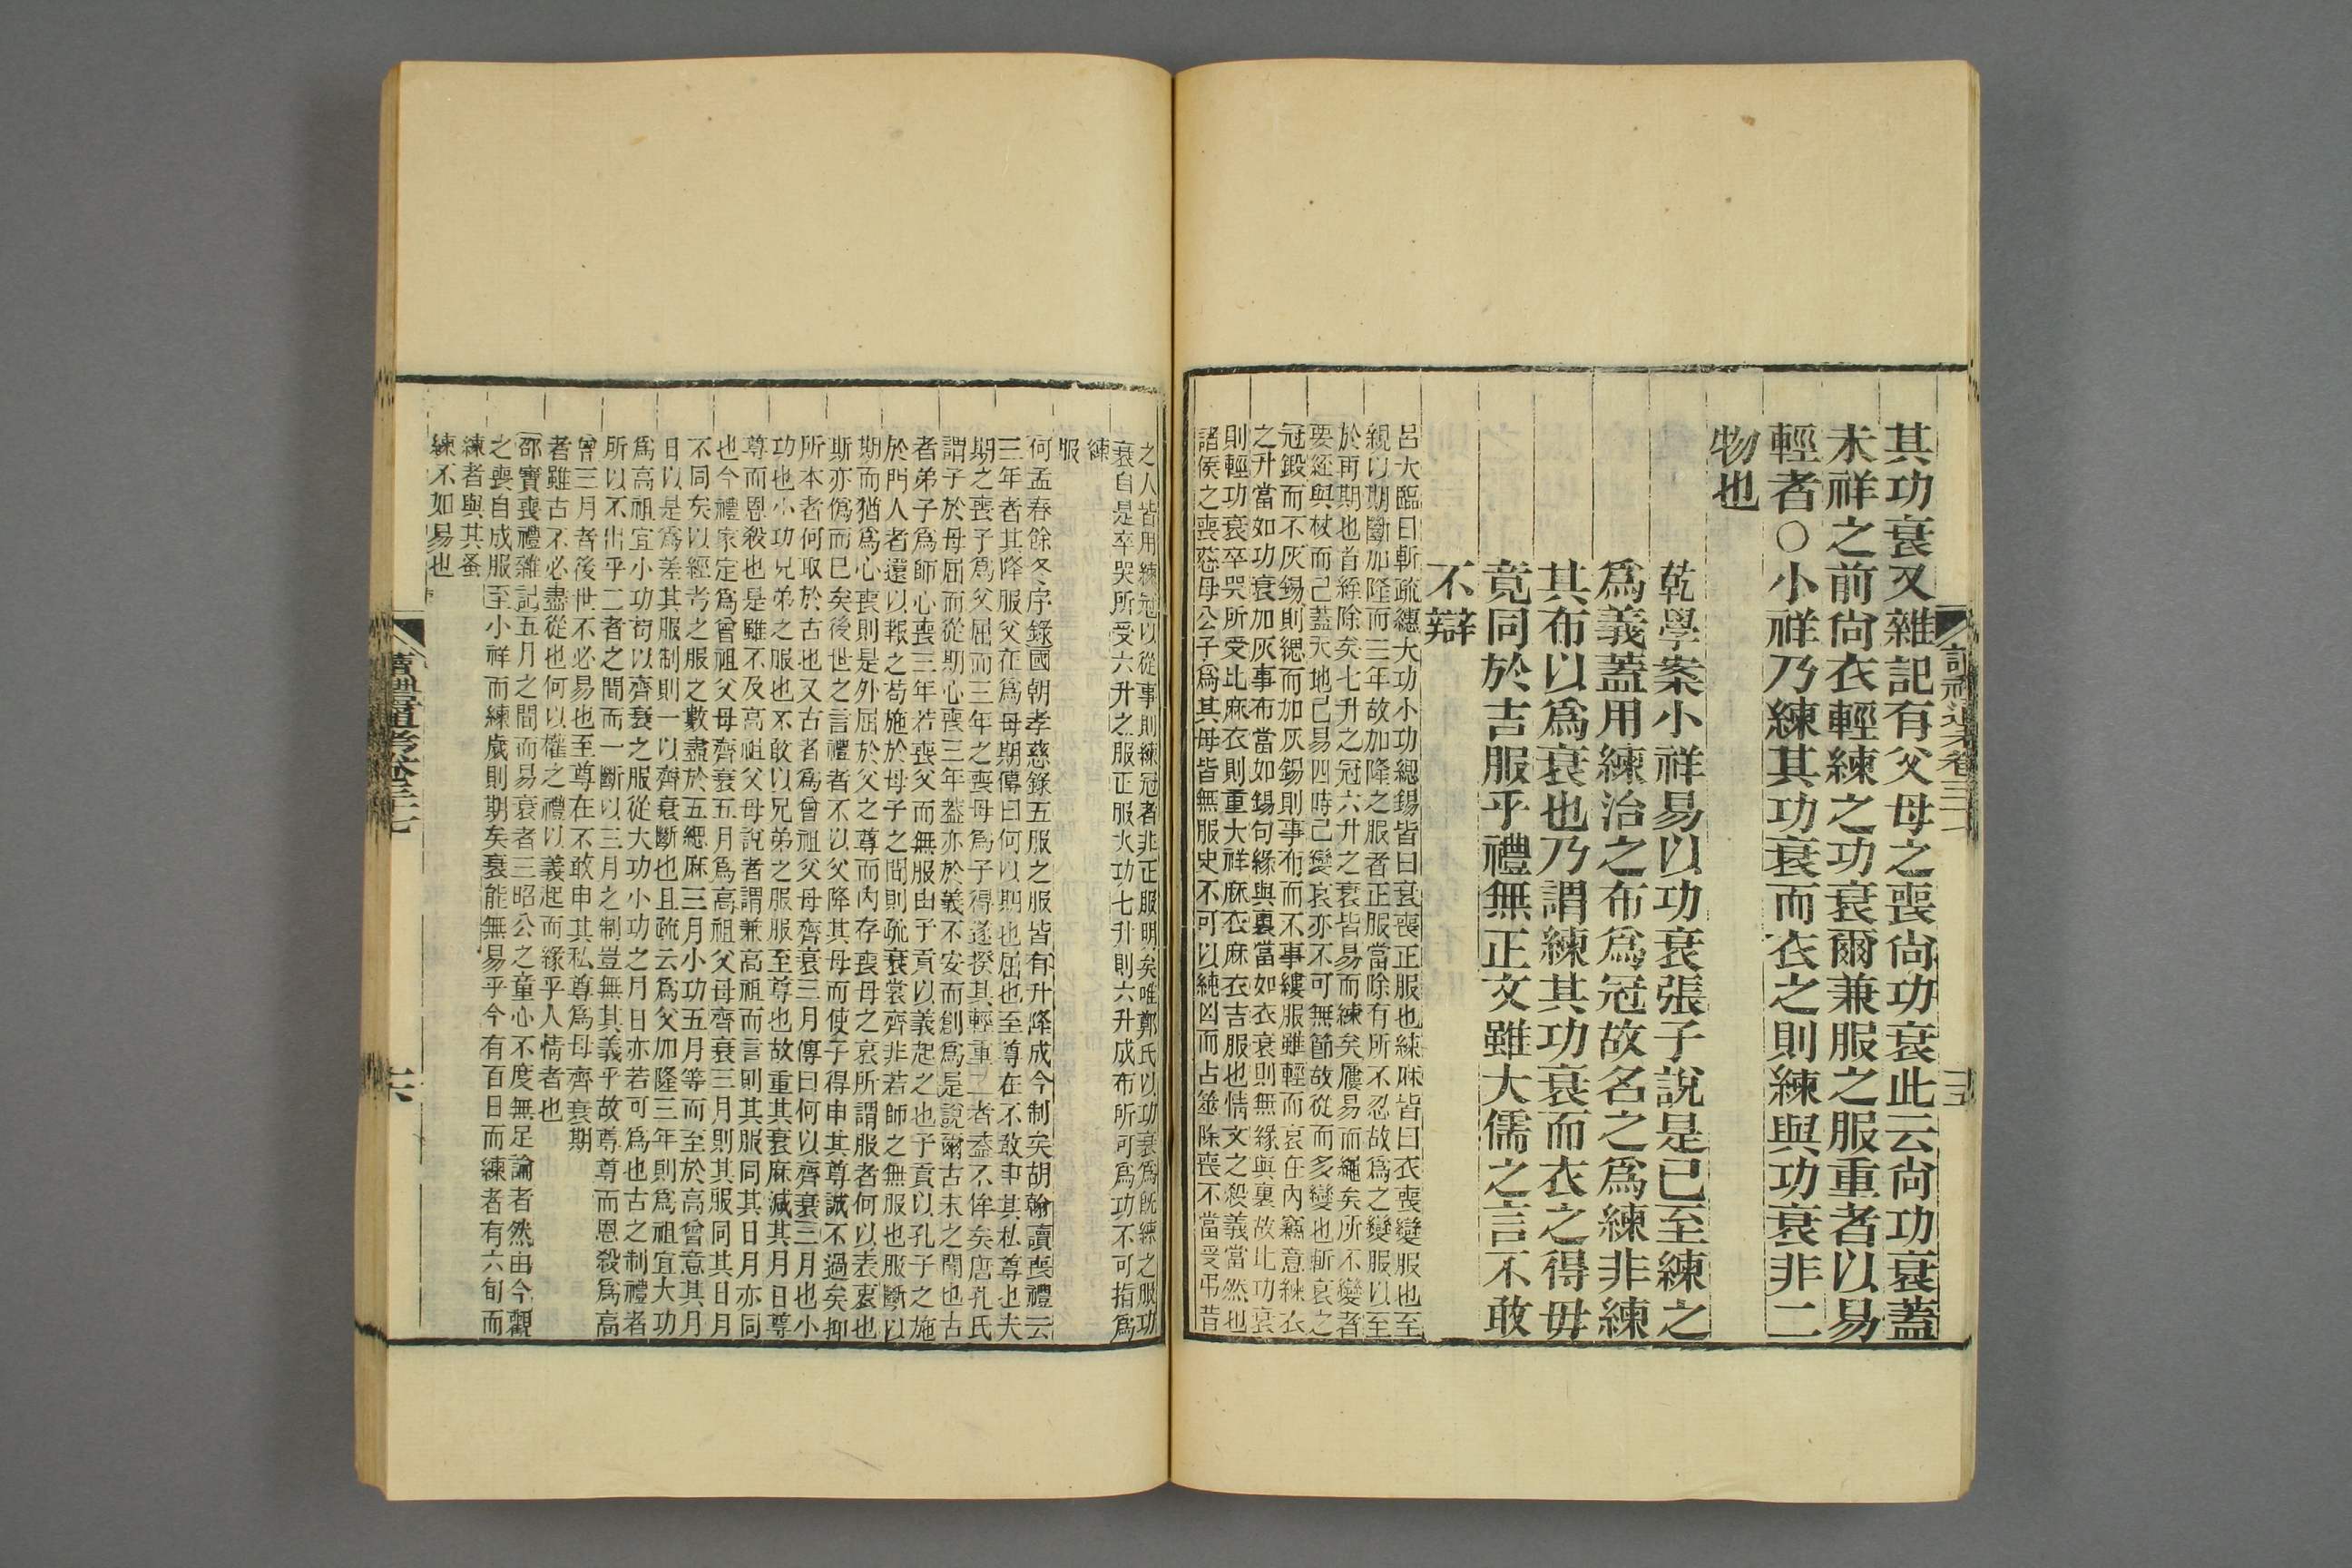 其功衰又雜記有父母之喪尙功衰此云尙功衰蓋
未祥之前尙衣輕練之功衰爾兼服之服重者以易
輕者○小祥乃練其功衰而衣之則練與功衰非二
物也
乾學案小祥易以功衰張子說是已至練之
爲義蓋用練治之布爲冠故名之爲練非練
其布以爲衰也乃謂練其功衰而衣之得毋
竟同於吉服乎禮無正文雖大儒之言不敢
不辯
呂大臨曰斬疏緦大功小功緦錫皆曰衰喪正服也練麻皆曰衣喪變服也至
親以期斷加隆而三年故加隆之服者正服當除有所不忍故爲之變服以至
於再期也首絰除矣七升之冠六升之衰皆易而練矣屨易而繩矣所不變者
要絰與杖而已蓋天地已易四時已變哀亦不可無節故從而多變也斬衰之
冠鍛而不灰錫則緦而加灰錫則事布而不事縷服雖輕而哀在內竊意練衣
之升當如功衰加灰事布當如錫句緣與裏當如衣衰則無緣與裏故比功衰
則輕功衰卒哭所受比麻衣則重大祥麻衣麻衣吉服也情文之殺義當然也
諸侯之喪慈母公子爲其母皆無服史不可以純凶而占筮除喪不當受弔昔
之人皆用練冠以從事則練冠者非正服明矣唯鄭氏以功衰爲旣練之服功
衰自是卒哭所受六升之服正服大功七升則六升成布所可爲功不可指爲
練
服
何孟春餘冬序錄國朝孝慈錄五服之服皆有升降成今制矣胡翰讀喪禮云
三年者其降服父在爲母期傳曰何以期也屈也至尊在不敢申其私尊也夫
期之喪子爲父屈而三年之喪母爲子得遂揆其輕重二者蓋不侔矣唐孔氏
謂子於母屈而從期心喪三年蓋亦於義不安而創爲是說爾古未之聞也古
者弟子爲師心喪三年若喪父而無服由子貢以義起之也子貢以孔子之施
於門人者還以報之苟施於母子之間則疏衰裳齊非若師之無服也服斷以
期而猶爲心喪則是外屈於父之尊而內存喪母之哀所謂服者何以表衷也
斯亦僞而已矣後世之言禮者不以父降其母而使子得申其尊誠不過矣抑
所本者何取於古也又古者爲曾祖父母齊衰三月傳曰何以齊衰三月也小
功也小功兄弟之服也不敢以兄弟之服服至尊也故重其衰麻減其月日尊
尊而恩殺也是雖不及高祖父母說者謂兼高祖而言則其服同其日月亦同
也今禮家定爲曾祖父母齊衰五月爲高祖父母齊衰三月則其服同其日月
不同矣以經考之服之數盡於五緦麻三月小功五月等而至於高曾意其月
日以是爲差其服制則一以齊衰斷也且疏云爲父加隆三年則爲祖宜大功
爲高祖宜小功苟以齊衰之服從大功小功之月日亦若可爲也古之制禮者
所以不出乎二者之間而一斷以三月之制豈無其義乎故尊尊而恩殺爲高
曾三月者後世不必易也至尊在不敢申其私尊爲母齊衰期
者雖古不必盡從也何以權之禮以義起而緣乎人情者也
邵寶喪禮雜記五月之間而易衰者三昭公之童心不度無足論者然由今觀
之喪自成服至小祥而練歲則期矣衰能無易乎今有百日而練者有六旬而
練者與其蚤
練不如易也